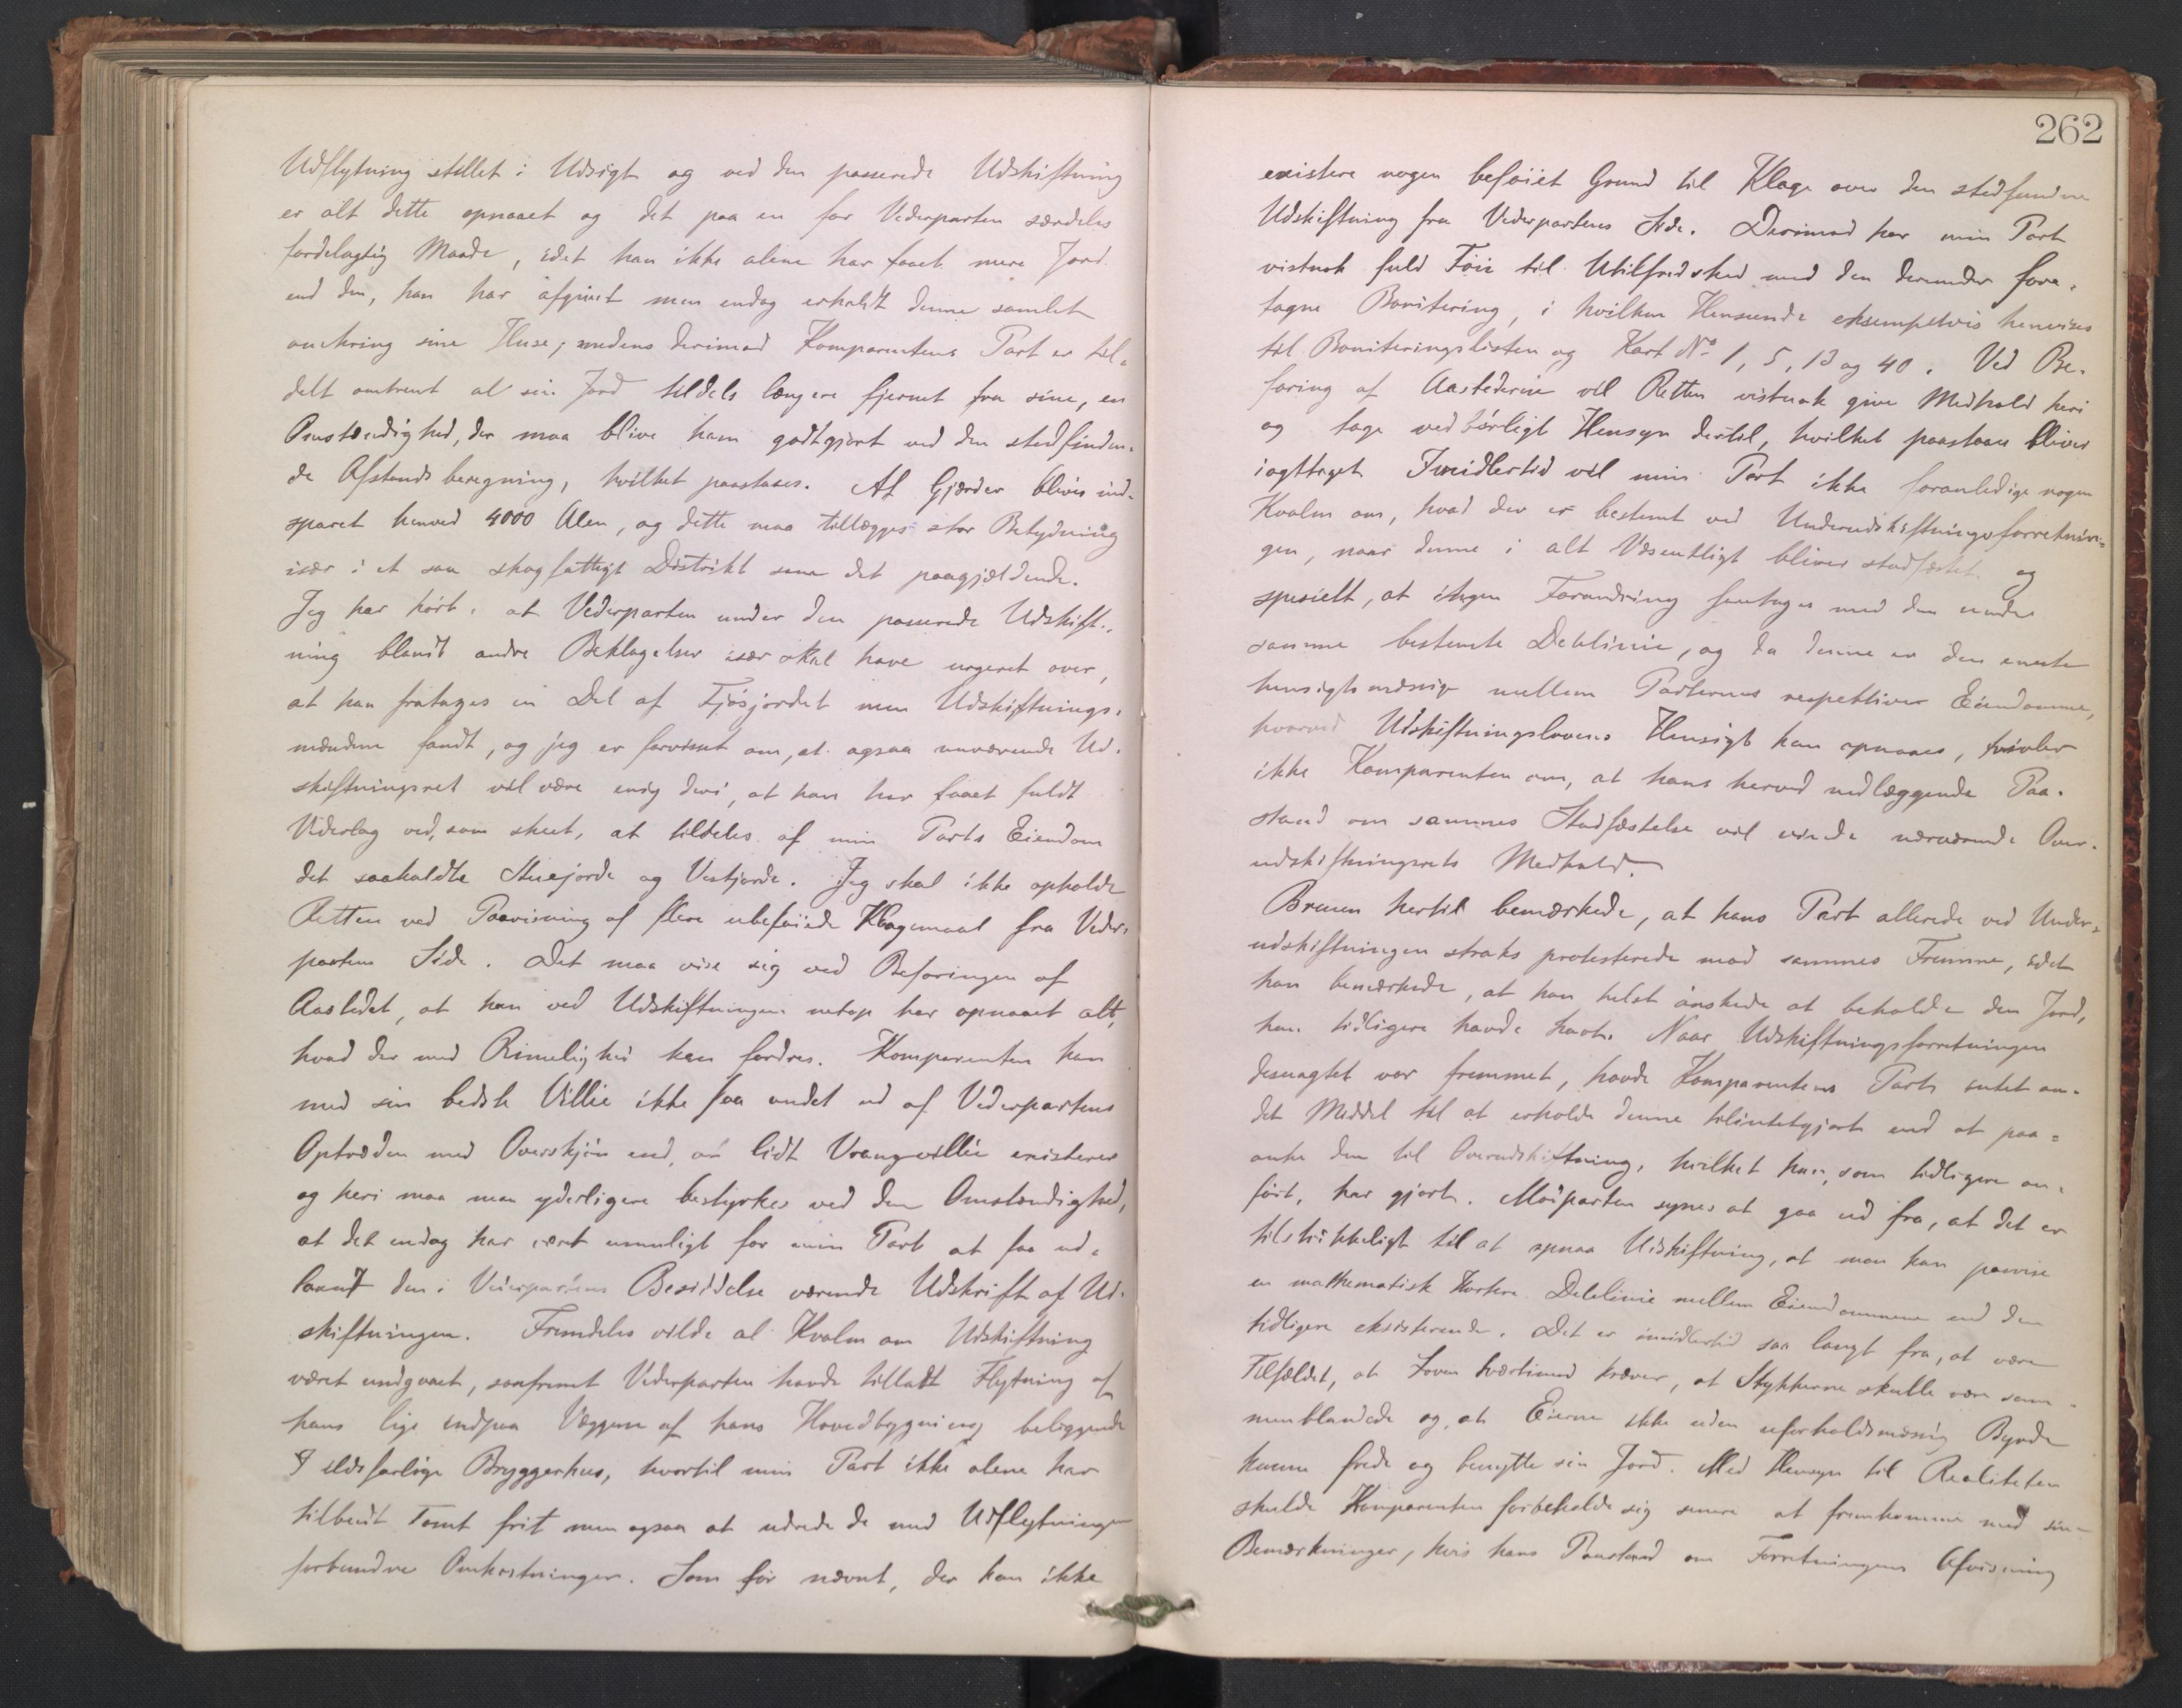 Udflytning stillet i Udsigt og ved den passerede Udskiftning
er alt dette opnaaet og det paa en for Vederparten særdeles
fordelagtig Maade, idet han ikke alene har faaet mere Jord
end den, han har afgivet men endog erholdt denne samlet
omkring sine Huse; medens derimod Komparentens Part er til-
delt omtrent al sin Jord tildels længere fjernet fra sine, en
Omstændighed, der maa blive ham godtgjort ved den stedfinden-
de Afstandsberegning, hvilket paastaaes. Af Gjærder bliver ind-
sparet henved 4000 Alen, og dette maa tillægges stor Betydning
især i et saa skogfattigt Distrikt som det paagjældende.
Jeg har hørt, at Vederparten under den passerede Udskift-
ning blandt andre Beklagelser især skal have urgeret over,
at han fratages en Del af Fjøsjordet men Udskiftnings-
mændene fandt, og jeg er forvisset om, at ogsaa nuværende Ud-
skiftningsret vil være enig deri, at han har faaet fuldt
Vederlag ved, som skeet, at tildeles af min Parts Eiendom
det saakaldte Stuejorde og Vestjorde. Jeg skal ikke opholde
Retten ved Paavisning af flere ubeføiede Klagemaal fra Veder-
partens Side. Det maa vise sig ved Befaringen af
Aastedet, at han ved Udskiftningen netop har opnaaet alt,
hvad der med Rimelighed kan fordres. Komparenten kan
med sin bedste Villie ikke faa andet ud af Vederpartens
Optræden med Overskjøn end, at lidt Vrangvillie existerer
og heri maa man yderligere bestyrkes ved den Omstændighed,
at det endog har været umuligt for min Part at faa ud-
laant den i Vederpartens Besiddelse værende Udskrift af Ud-
skiftningen. Fremdeles vilde al Kvalm om Udskiftning
været undgaaet, saafremt Vederparten havde tilladt Flytning af
hans lige indpaa Væggen af hans Hovedbygning beliggende
ildsfarlige Bryggerhus, hvortil min Part ikke alene har
tilbudt Tomt frit men ogsaa at udrede de med Udflytningen
forbundne Omkostninger. Som før nævnt, der kan ikke
262
existere nogen beføiet Grund til Klage over den stedfundne
Udskiftning fra Vederpartens Side. Derimod har min Part
vistnok fuld Føie til Utilfredshed med den derunder fore-
tagne Bonitering, i hvilken Henseende eksempelvis henvises
til Boniteringslisten og Kart No 1, 5, 13 og 40. Ved Be-
faring af Aastederne vil Retten vistnok give Medhold heri
og tage vedbørligt Hensyn dertil, hvilket paastaaes bliver
iagttaget. Imidlertid vil min Part ikke foranledige nogen
Kvalm om, hvad der er bestemt ved Underudskiftningsforretnin-
gen, naar denne i alt Væsentligt bliver stadfæstet og
specielt, at ingen Forandring foretages med den under
samme bestemte Delelinie, og da denne er den eneste
hensigtsmæssige mellem Parternes respektive Eiendomme,
hvorved Udskiftningslovens Hensigt kan opnaaes, tvivler
ikke Komparenten om, at hans herved nedlæggende Paa-
stand om sammes Stadfæstelse vil vinde nærværende Over-
udskiftningsrets Medhold.
Bruun hertil bemærkede, at hans Part allerede ved Under-
udskiftningen straks protesterede mod sammes Fremme, idet
han bemærkede, at han helst ønskede at beholde den Jord,
han tidligere havde havt. Naar Udskiftningsforretningen
desuagtet var fremmet, havde Komparentens Part intet an-
det Middel til at erholde denne tilintetgjort end at paa-
anke den til Overudskiftning, hvilket han, som tidligere an-
ført, har gjort. Modparten synes at gaa ud fra, at det er
tilstrækkeligt til at opnaa Udskiftning, at man kan paavise
en mathematisk kortere Delelinie mellem Eiendommene end den
tidligere eksisterende. Det er imidlertid saa langt fra, at være
Tilfældet, at Loven tværtimod kræver, at Stykkerne skulle være sam-
menblandede og, at Eierne ikke uden uforholdsmæssig Byrde
kunne frede og benytte sin Jord. Med Hensyn til Realiteten
skulde Komparenten forbeholde sig senere at fremkomme med sine
Bemærkninger, hvis hans Paastand om Forretningens Afvisning